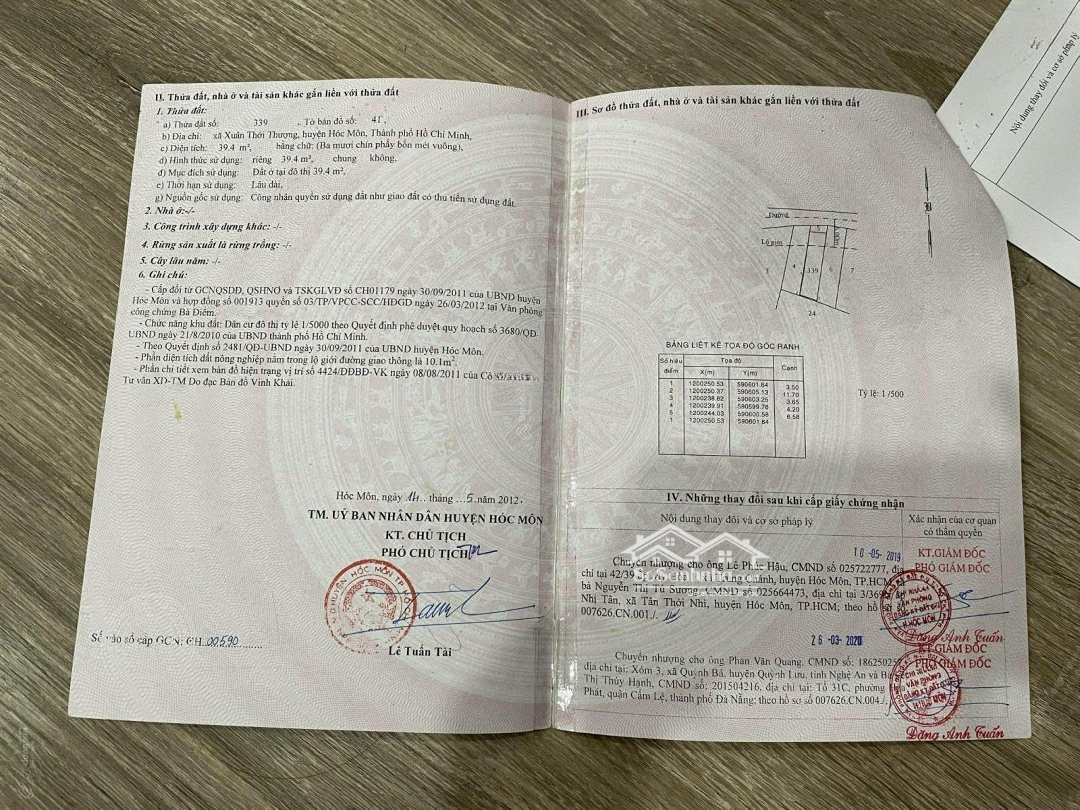 II. Thửa đất, nhà ở và tài sản khác gắn liền với thửa đất
1. Thửa đất:
a) Thửa đất số: 339 , Tờ bản đồ số: 41,
b) Địa chỉ: xã Xuân Thới Thượng, huyện Hóc Môn, Thành phố Hồ Chí Minh,
c) Diện tích: 39.4 m², bằng chữ: (Ba mươi chín phẩy bốn mét vuông),
d) Hình thức sử dụng: riêng 39.4 m², chung không,
đ) Mục đích sử dụng: Đất ở tại đô thị 39.4 m²,
e) Thời hạn sử dụng: Lâu dài,
g) Nguồn gốc sử dụng: Công nhận quyền sử dụng đất như giao đất có thu tiền sử dụng đất.
2. Nhà ở:-/-
3. Công trình xây dựng khác: -/-
4. Rừng sản xuất là rừng trồng: -/-
5. Cây lâu năm: -/-
6. Ghi chú:
- Cấp đổi từ GCNQSDĐ, QSHNO và TSKGLVĐ số CH01179 ngày 30/09/2011 của UBND huyện
Hóc Môn và hợp đồng số 001913 quyển số 03/TP/VPCC-SCC/HĐGD ngày 26/03/2012 tại Văn phòng
công chứng Bà Điểm.
- Chức năng khu đất: Dân cư đô thị tỷ lệ 1/5000 theo Quyết định phê duyệt quy hoạch số 3680/QĐ-
UBND ngày 21/8/2010 của UBND thành phố Hồ Chí Minh.
- Theo Quyết định số 2481/QĐ-UBND ngày 30/09/2011 của UBND huyện Hóc Môn.
- Phần diện tích đất nông nghiệp nằm trong lộ giới đường giao thông là 10.1m².
- Phần chi tiết xem bản đồ hiện trạng vị trí số 4424/ĐĐBĐ-VK ngày 08/08/2011 của
Tư vấn XD-TM Đo đạc Bản đồ Vĩnh Khải.
Hóc Môn, ngày 14 tháng 5 năm 2012
TM. UỶ BAN NHÂN DÂN HUYỆN HÓC MÔN
KT. CHỦ TỊCH
PHÓ CHỦ TỊCH
Lê Tuấn Tài
Số vào sổ cấp GCN: CH 00590
III. Sơ đồ thửa đất, nhà ở và tài sản khác gắn liền với thửa đất
B
Đường
Lộ giới
5
4 339 6 7
24
BẢNG LIỆT KÊ TỌA ĐỘ GÓC RANH
Số hiệu điểm Tọa độ Cạnh
X(m) Y(m)
1 1200250.53 590601.64
3.50
2 1200250.37 590605.13
11.70
3 1200238.82 590603.25
3.65
4 1200239.91 590599.76
4.20
5 1200244.03 590600.58
6.58
1 1200250.53 590601.64
Tỷ lệ: 1/500
IV. Những thay đổi sau khi cấp giấy chứng nhận
Nội dung thay đổi và cơ sở pháp lý
Xác nhận của cơ quan
có thẩm quyền
10-05-2019
KT.GIÁM ĐỐC
PHÓ GIÁM ĐỐC
Chuyển nhượng cho ông Lê Phúc Hậu, CMND số 025722777, địa
chỉ tại 42/39 huyện Hóc Môn, TP.HCM
bà Nguyễn Thị Tú Sương, CMND số 025664473, địa chỉ tại 3/369
Nhị Tân, xã Tân Thới Nhì, huyện Hóc Môn, TP.HCM; theo hồ sơ số
007626.CN.001./.
Đặng Anh Tuấn
26-03-2020
KT.GIÁM ĐỐC
PHÓ GIÁM ĐỐC
Chuyển nhượng cho ông Phan Văn Quang, CMND số:
địa chỉ tại: Xóm 3, xã Quỳnh Bá, huyện Quỳnh Lưu, tỉnh Nghệ An và Bà
Thị Thúy Hạnh, CMND số: 201504216, địa chỉ tại: Tổ 31C, phường
Phát, quận Cẩm Lệ, thành phố Đà Nẵng; theo hồ sơ số 007626.CN.004./.
Đặng Anh Tuấn
Nội dung thay đổi và cơ sở pháp lý